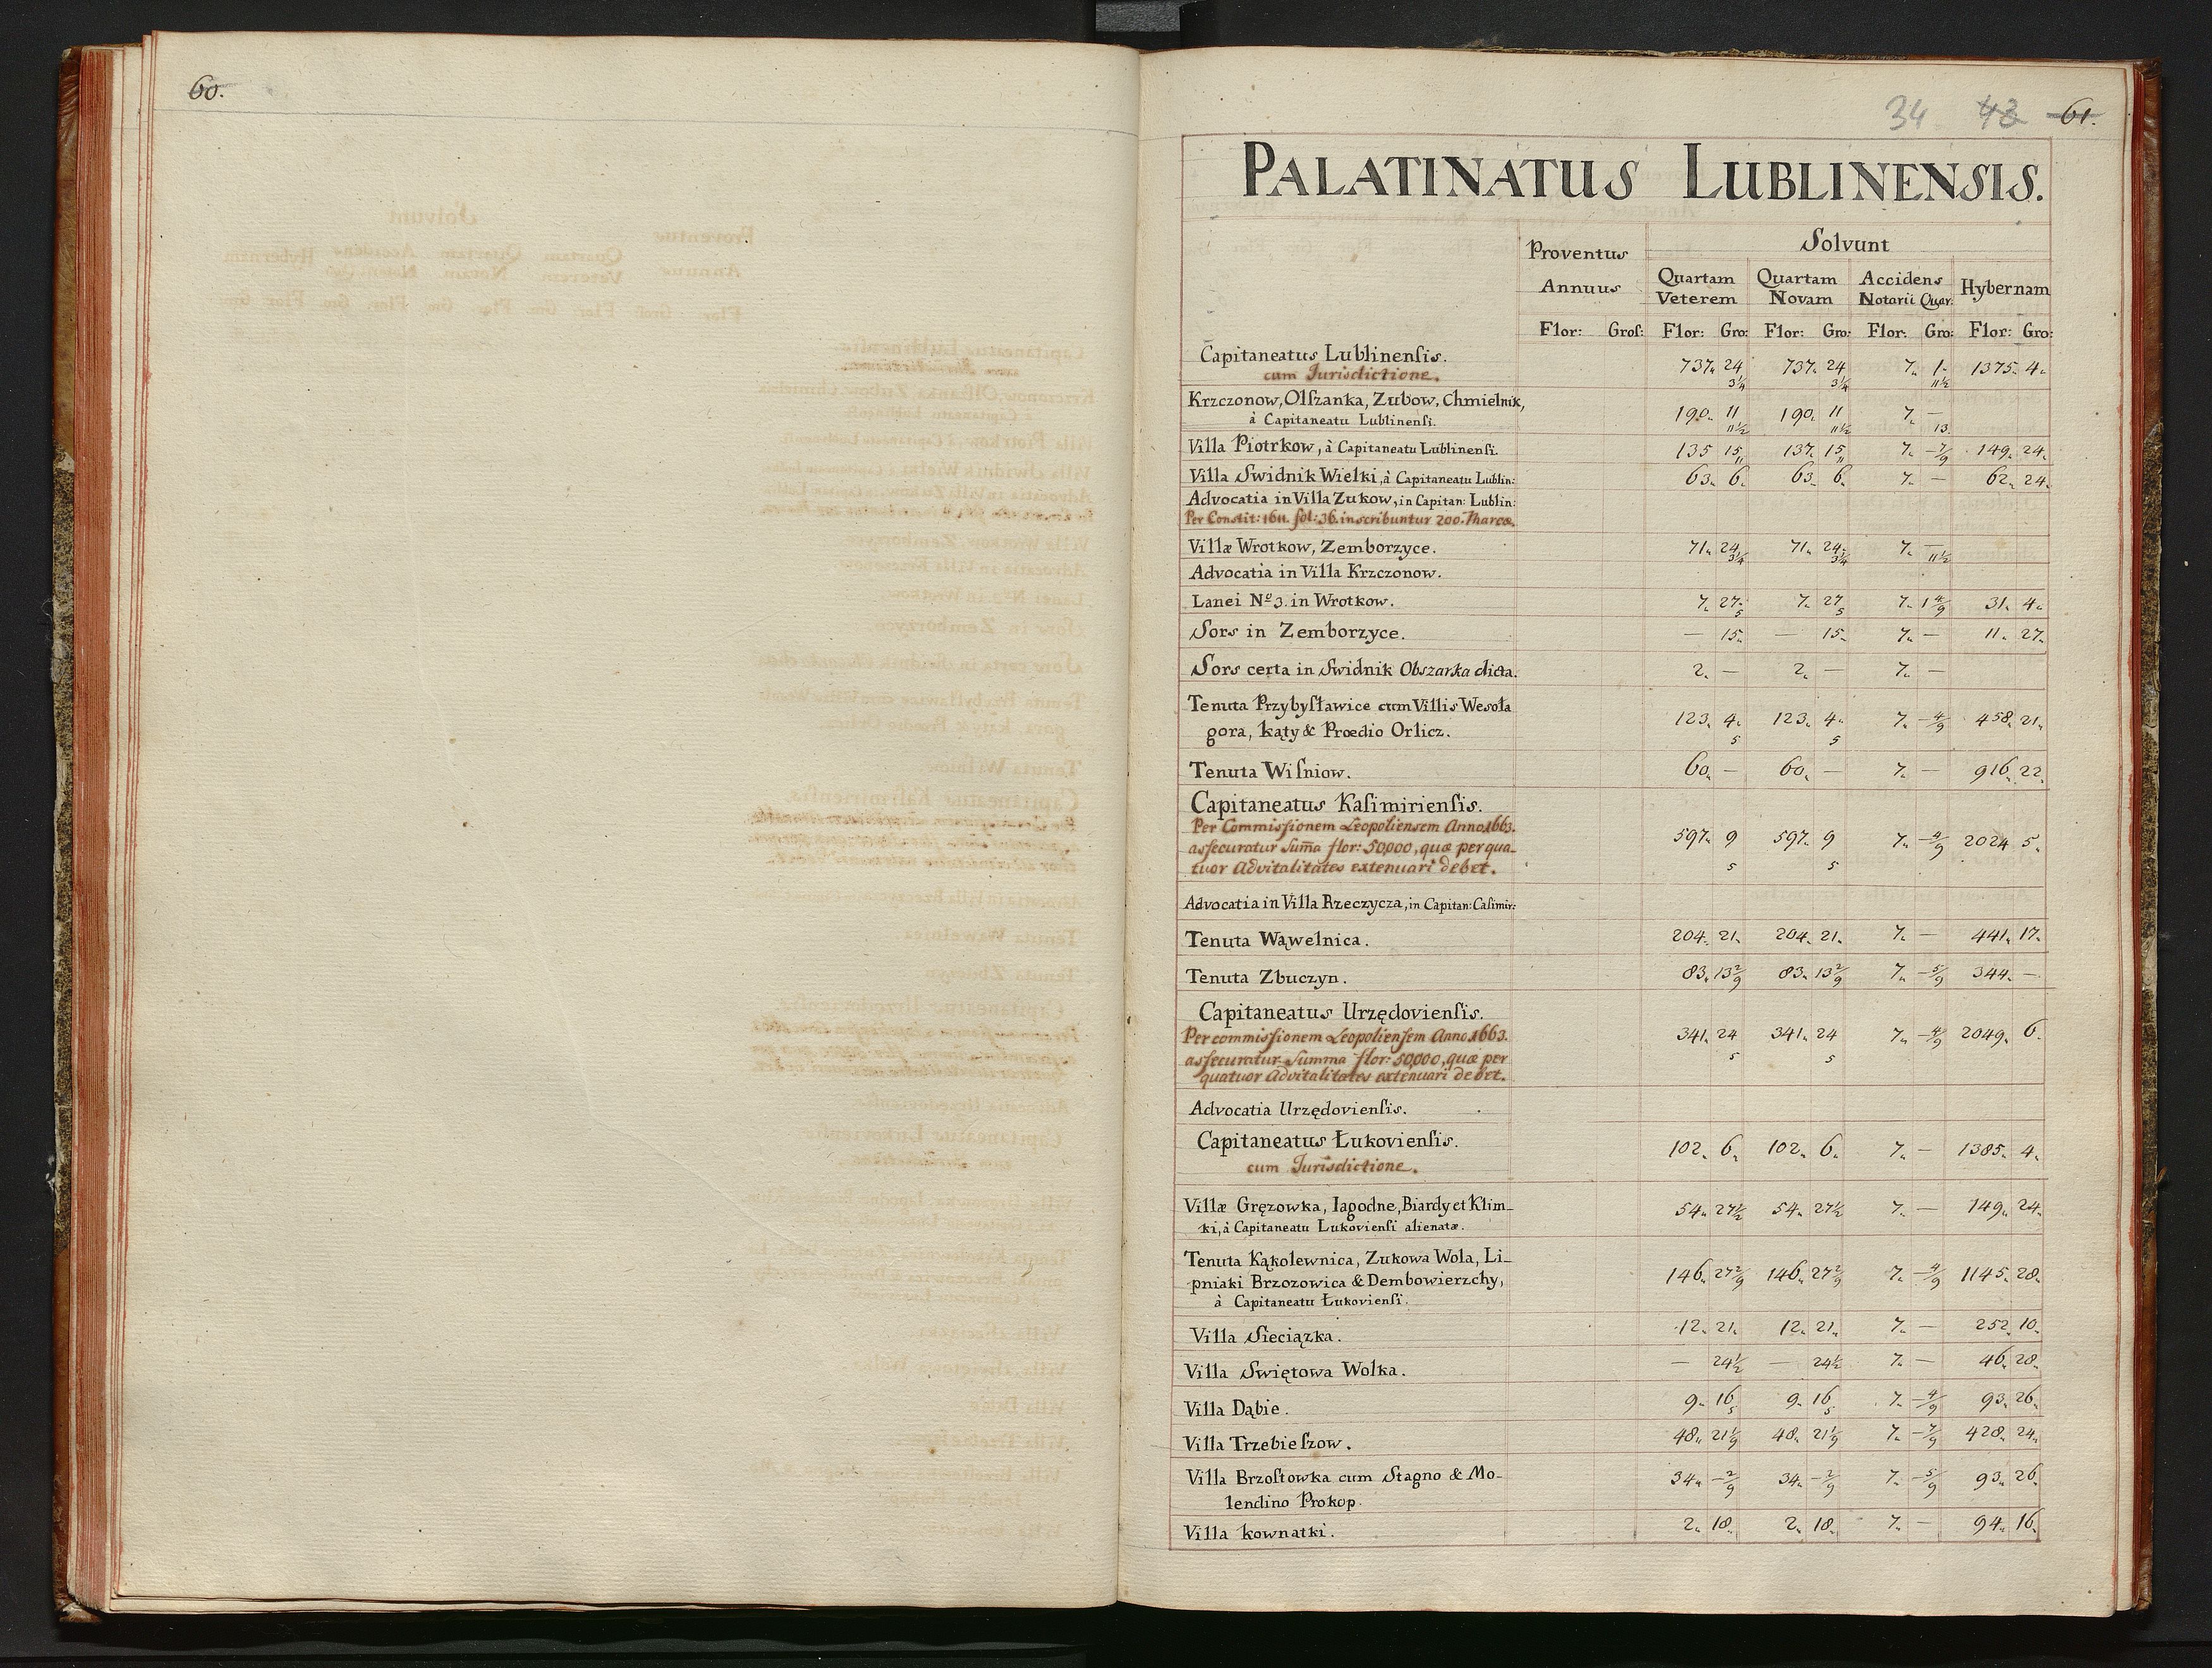 60.
34 43 61.
PALATINATUS LUBLINENSIS.
Proventus Annuus
Solvunt
Quartam Veterem Quartam Novam Accidens Notarii Quar: Hybernam
Flor: Groſ: Flor: Gro: Flor: Gro: Flor: Gro: Flor: Gro:
Capitaneatus Lublinenſis. 737. 24 3¼ 737. 24 3¼ 7. 1. 11½ 1375. 4.
cum Jurisdictione.
Krzczonow, Olſzanka, Zubow, Chmielnik, 190. 11 11½ 190. 11 11½ 7. — 13.
à Capitaneatu Lublinenſi.
Villa Piotrkow, à Capitaneatu Lublinenſi. 135 15 11 137. 15 11 7. — 7/9 149. 24.
Villa Swidnik Wielki, à Capitaneatu Lublin: 63. 6. 63. 6. 7. — 62. 24.
Advocatia in Villa Zukow, in Capitan: Lublin:
Per Constit: 1611. fol: 36. inscribuntur 200. Marcæ.
Villæ Wrotkow, Zemborzyce. 71. 24. 3¼ 71. 24. 3¼ 7. — 11½
Advocatia in Villa Krzczonow.
Lanei Nº 3. in Wrotkow. 7. 27. 5 7. 27 5 7. 1 4/9 31. 4.
Sors in Zemborzyce. — 15. — 15. 7. — 11. 27.
Sors certa in Swidnik Obszarka dicta. 2. — 2. — 7. —
Tenuta Przybyſławice cum Villis Wesoła
gora, kąty & Prœdio Orlicz. 123. 4. 5 123. 4. 5 7. — 4/9 458. 21.
Tenuta Wiſniow. 60. — 60. — 7. — 916. 22.
Capitaneatus Kaſimirienſis.
Per Commiſſionem Leopoliensem Anno 1663.
aſſecuratur Sum̄a flor: 50,000, quæ per qua- 597. 9 5 597. 9 5 7. — 4/9 2024 5.
tuor Advitalitates extenuari debet.
Advocatia in Villa Rzeczycza, in Capitan: Caſimir:
Tenuta Wąwelnica. 204. 21. 204. 21. 7. — 441. 17.
Tenuta Zbuczyn. 83. 13 2/9 83. 13 2/9 7. — 5/9 344. —
Capitaneatus Urzędovienſis.
Per commiſſionem Leopolienſem Anno 1663. 341. 24 5 341. 24 5 7. — 4/9 2049. 6.
aſſecuratur Summa flor: 50,000, quæ per
quatuor Advitalitates extenuari debet.
Advocatia Urzędovienſis.
Capitaneatus Łukovienſis. 102. 6. 102. 6. 7. — 1385. 4.
cum Jurisdictione.
Villæ Gręzowka, Iagodne, Biardy et Klim- 54. 27½ 54. 27½ 7. — 149. 24.
ki, à Capitaneatu Lukovienſi alienatæ.
Tenuta Kąkolewnica, Zukowa Wola, Li-
pniaki Brzozowica & Dembowierzchy, 146. 27 2/9 146. 27 2/9 7. — 4/9 1145. 28.
à Capitaneatu Łukovienſi.
Villa Sieciązka. 12. 21. 12. 21. 7. — 252. 10.
Villa Swiętowa Wolka. — 24½ — 24½ 7. — 46. 28.
Villa Dąbie. 9. 16 5 9. 16 5 7. — 4/9 93. 26.
Villa Trzebieſzow. 48. 21 1/9 48. 21 1/9 7. — 7/9 428. 24.
Villa Brzoſtowka cum Stagno & Mo- 34. — 2/9 34. — 2/9 7. — 5/9 93. 26.
lendino Prokop.
Villa kownatki. 2. 18. 2. 18. 7. — 94. 16.